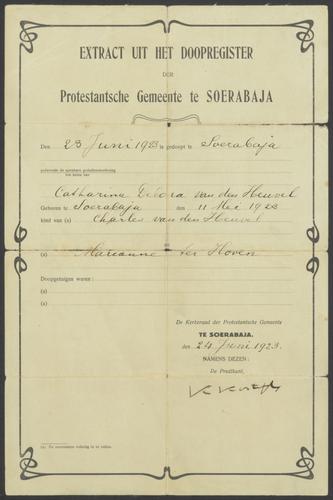 EXTRACT UIT HET DOOPREGISTER
DER
Protestantsche Gemeente te SOERABAJA
Den 23 Juni 1923 is gedoopt te Soerabaja
Catharina Debora van den Heuvel
Geboren te Soerabaja den 11 Mei 1923
kind van (a) Charles van den Heuvel
(a) Marianne ter Hoven
Doopgetuigen waren:
(a)
(a)
De Kerkeraad der Protestantsche Gemeente
TE SOERABAJA.
den 24 Juni 1923.
NAMENS DEZEN:
De Predikant,
(a). De voornamen volledig in te vullen.